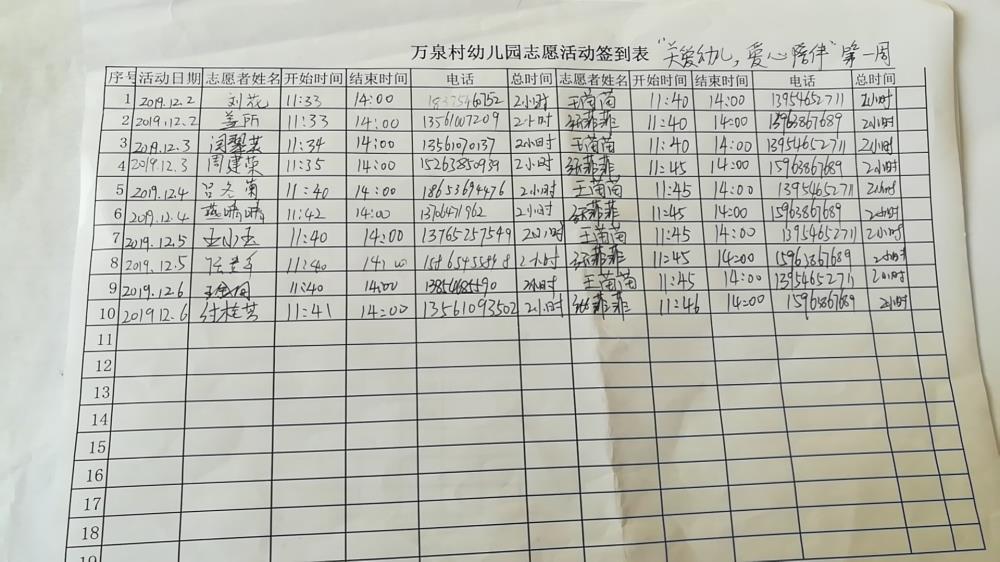 万泉村幼儿园志愿活动签到表 "关爱幼儿,爱心陪伴"第一周
序号 活动日期 志愿者姓名 开始时间 结束时间 电话 总时间 志愿者姓名 开始时间 结束时间 电话 总时间
1 2019.12.2 刘花 11:33 14:00 2小时 王苗苗 11:40 14:00 13954652711 2小时
2 2019.12.2 11:33 14:00 13561007209 2小时 张菲菲 11:40 14:00 15963867689 2小时
3 2019.12.3 11:34 14:00 13561070137 2小时 王苗苗 11:40 14:00 13954652711 2小时
4 2019.12.3 周建荣 11:35 14:00 15263850939 2小时 张菲菲 11:45 14:00 15963867689 2小时
5 2019.12.4 11:40 14:00 18653694476 2小时 王苗苗 11:45 14:00 13954652711 2小时
6 2019.12.4 11:42 14:00 13706471962 2小时 张菲菲 11:45 14:00 15963867689 2小时
7 2019.12.5 王小玉 11:40 14:00 13765257549 2小时 王苗苗 11:45 14:00 13954652711 2小时
8 2019.12.5 11:40 14:00 2小时 张菲菲 11:45 14:00 15963867689 2小时
9 2019.12.6 11:40 14:00 2小时 王苗苗 11:45 14:00 13954652711 2小时
10 2019.12.6 付桂英 11:41 14:00 13561093502 2小时 张菲菲 11:46 14:00 15963867689 2小时
11
12
13
14
15
16
17
18
19